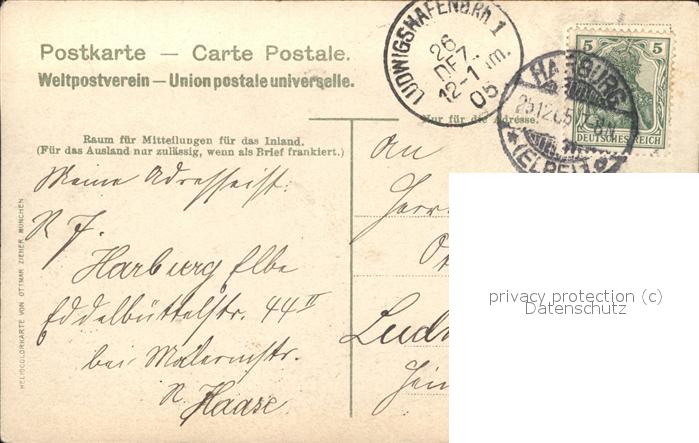 Postkarte — Carte Postale.
Weltpostverein — Union postale universelle.
LUDWIGSHAFEN A.RH. 1
26
DEZ.
12-1 m.
05
HARBURG
25.12.05
*(ELBE)1.
5 5
DEUTSCHES REICH
Nur für die Adresse.
Raum für Mitteilungen für das Inland.
(Für das Ausland nur zulässig, wenn als Brief frankiert.)
Meine Adresse ist:
Harburg Elbe
Eddelbüttelstr. 44 II
bei Malermstr.
Haase
An
Herrn
HELIOCOLORKARTE VON OTTMAR ZIEHER MÜNCHEN
privacy protection (c)
Datenschutz